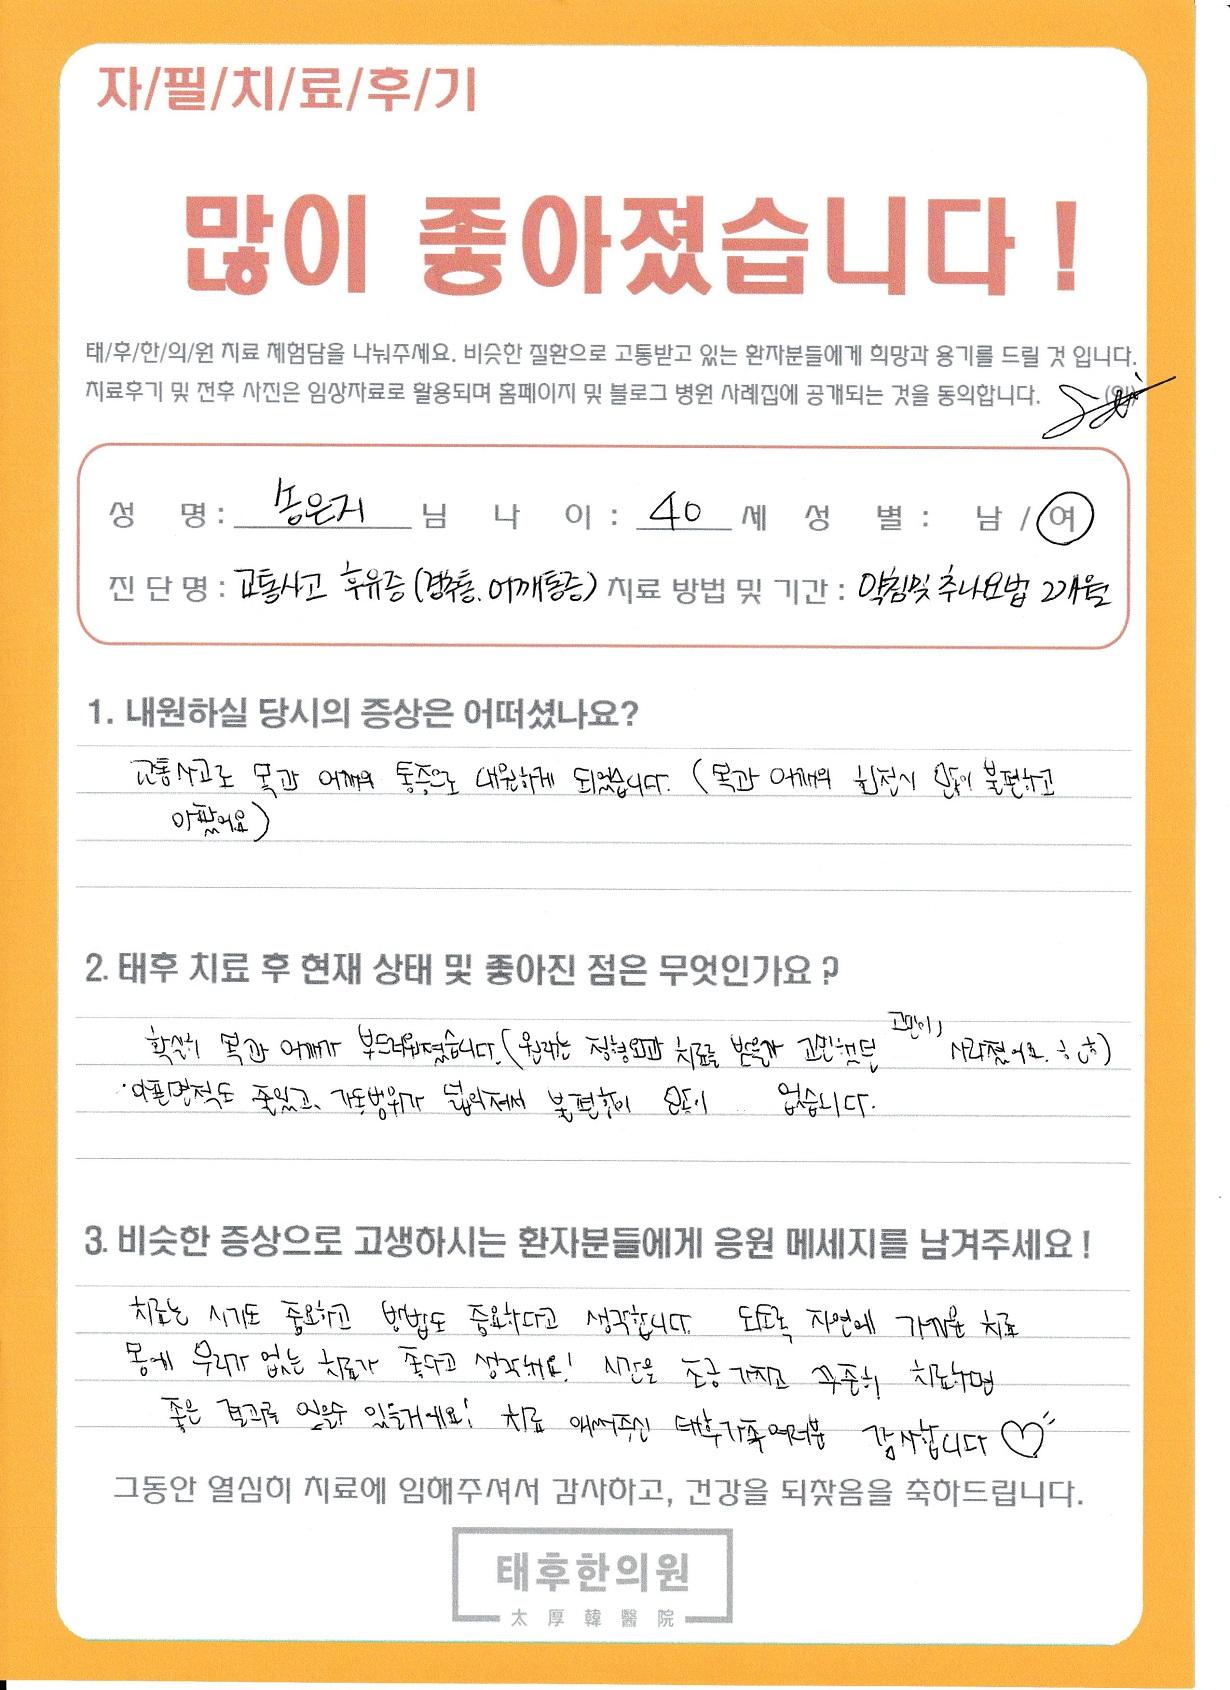 자/필/치/료/후/기
많이 좋아졌습니다 !
태/후/한/의/원 치료 체험담을 나눠주세요. 비슷한 질환으로 고통받고 있는 환자분들에게 희망과 용기를 드릴 것 입니다.
치료후기 및 전후 사진은 임상자료로 활용되며 홈페이지 및 블로그 병원 사례집에 공개되는 것을 동의합니다. (인)
성 명 : 송은지 님 나 이 : 40 세 성 별 : 남 / 여
진 단 명 : 교통사고 후유증 (경추통, 어깨통증) 치료 방법 및 기간 : 약침및 추나요법 2개월
1. 내원하실 당시의 증상은 어떠셨나요?
교통사고로 목과 어깨의 통증으로 내원하게 되었습니다. (목과 어깨의 회전시 많이 불편하고
아팠어요)
2. 태후 치료 후 현재 상태 및 좋아진 점은 무엇인가요 ?
확실히 목과 어깨가 부드러워졌습니다. (원래는 정형외과 치료를 받을까 고민했던 고민이, 사라졌어요. ㅎㅎ)
아픈면적도 줄었고, 가동범위가 넓어져서 불편함이 많이 없습니다.
3. 비슷한 증상으로 고생하시는 환자분들에게 응원 메세지를 남겨주세요 !
치료는 시기도 중요하고 방법도 중요하다고 생각합니다. 되도록 자연에 가까운 치료
몸에 무리가 없는 치료가 좋다고 생각해요! 시간을 조금 가지고 꾸준히 치료하면
좋은 결과를 얻을수 있을거예요! 치료 애써주신 태후가족여러분 감사합니다 ♡
그동안 열심히 치료에 임해주셔서 감사하고, 건강을 되찾음을 축하드립니다.
태후한의원
太 厚 韓 醫 院